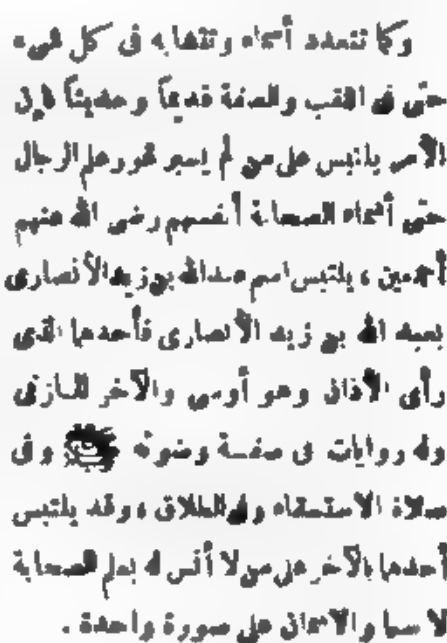 وكما تتعدد أسماء وتتشابه فى كل شىء
حتى فى اللقب والصفة قديماً وحديثاً فإن
الأمر يلتبس على من لم يسبر غور علم الرجال
حتى أسماء الصحابة أنفسهم رضى الله عنهم
أجمعين ، يلتبس اسم عبدالله بن زيد الأنصارى
بعبد الله بن زيد الأنصارى فأحدهما الذى
رأى الأذان وهو أوسى والآخر المازنى
وله روايات فى صفة وضوئه ﷺ وفى
صلاة الاستسقاء وفى الطلاق ، وقد يلتبس
أحدهما بالآخر على من لا أنس له بعلم الصحابة
لا سيما والاسمان على صورة واحدة .